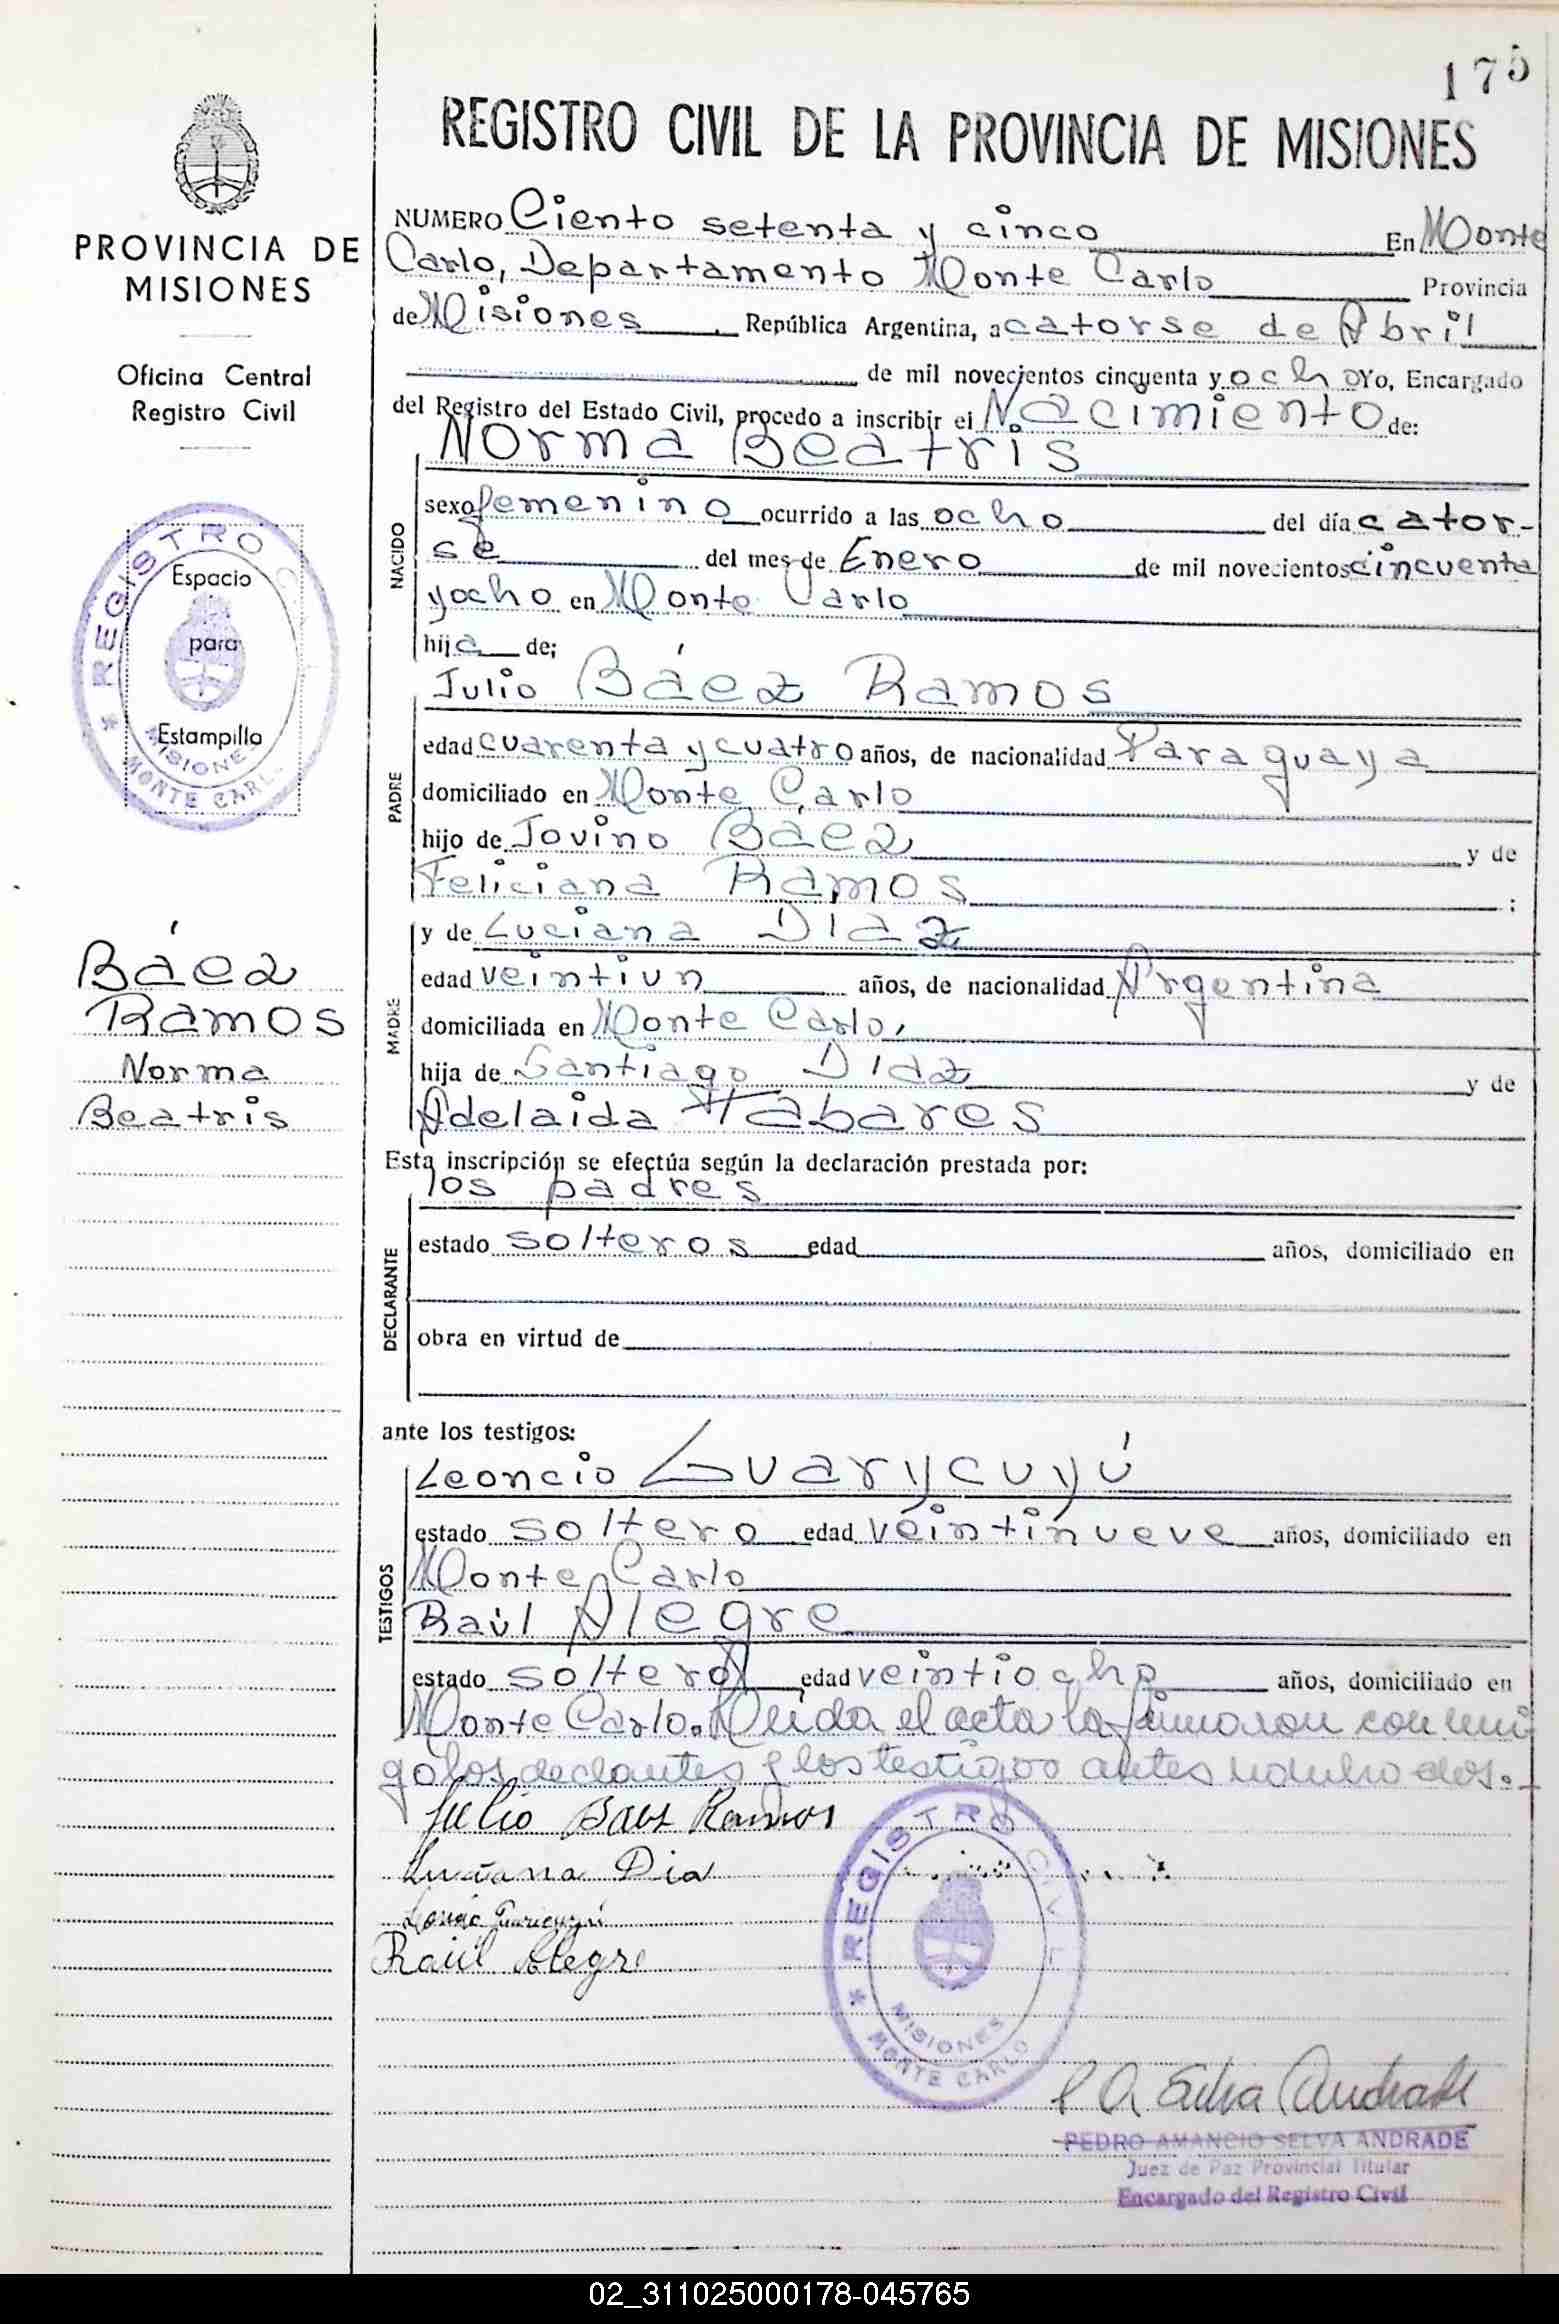 175
REGISTRO CIVIL DE LA PROVINCIA DE MISIONES
PROVINCIA DE
MISIONES
Oficina Central
Registro Civil
REGISTRO CIVIL
Espacio
para
Estampilla
MISIONES
* MONTE CARLO
Báez
Ramos
Norma
Beatris
NUMERO Ciento setenta y cinco En Monte
Carlo, Departamento Monte Carlo Provincia
de Misiones, República Argentina, a catorse de Abril
de mil novecientos cincuenta y ocho Yo, Encargado
del Registro del Estado Civil, procedo a inscribir el Nacimiento de:
NACIDO
Norma Beatris
sexo femenino ocurrido a las ocho del día cator-
se del mes de Enero de mil novecientos cincuenta
y ocho en Monte Carlo
hija de;
PADRE
Julio Báez Ramos
edad cuarenta y cuatro años, de nacionalidad Paraguaya
domiciliado en Monte Carlo
hijo de Jovino Báez y de
Feliciana Ramos ;
MADRE
y de Luciana Diaz
edad veintiun años, de nacionalidad Argentina
domiciliada en Monte Carlo,
hija de Santiago Diaz y de
Adelaida Tabares
Esta inscripción se efectúa según la declaración prestada por:
DECLARANTE
los padres
estado solteros edad años, domiciliado en
obra en virtud de
ante los testigos:
TESTIGOS
Leoncio Guarycuyú
estado soltero edad veintinueve años, domiciliado en
Monte Carlo
Raúl Alegre
estado soltero edad veintiocho años, domiciliado en
Monte Carlo. Leida el acta la firmaron conmi
go los declantes y los testigos antes nombrados.
Julio Baes Ramos
Luciana Dia
Raúl Alegre
REGISTRO CIVIL
MISIONES
* MONTE CARLO
P A Selva Andrade
PEDRO AMANCIO SELVA ANDRADE
Juez de Paz Provincial Titular
Encargado del Registro Civil
02_311025000178-045765